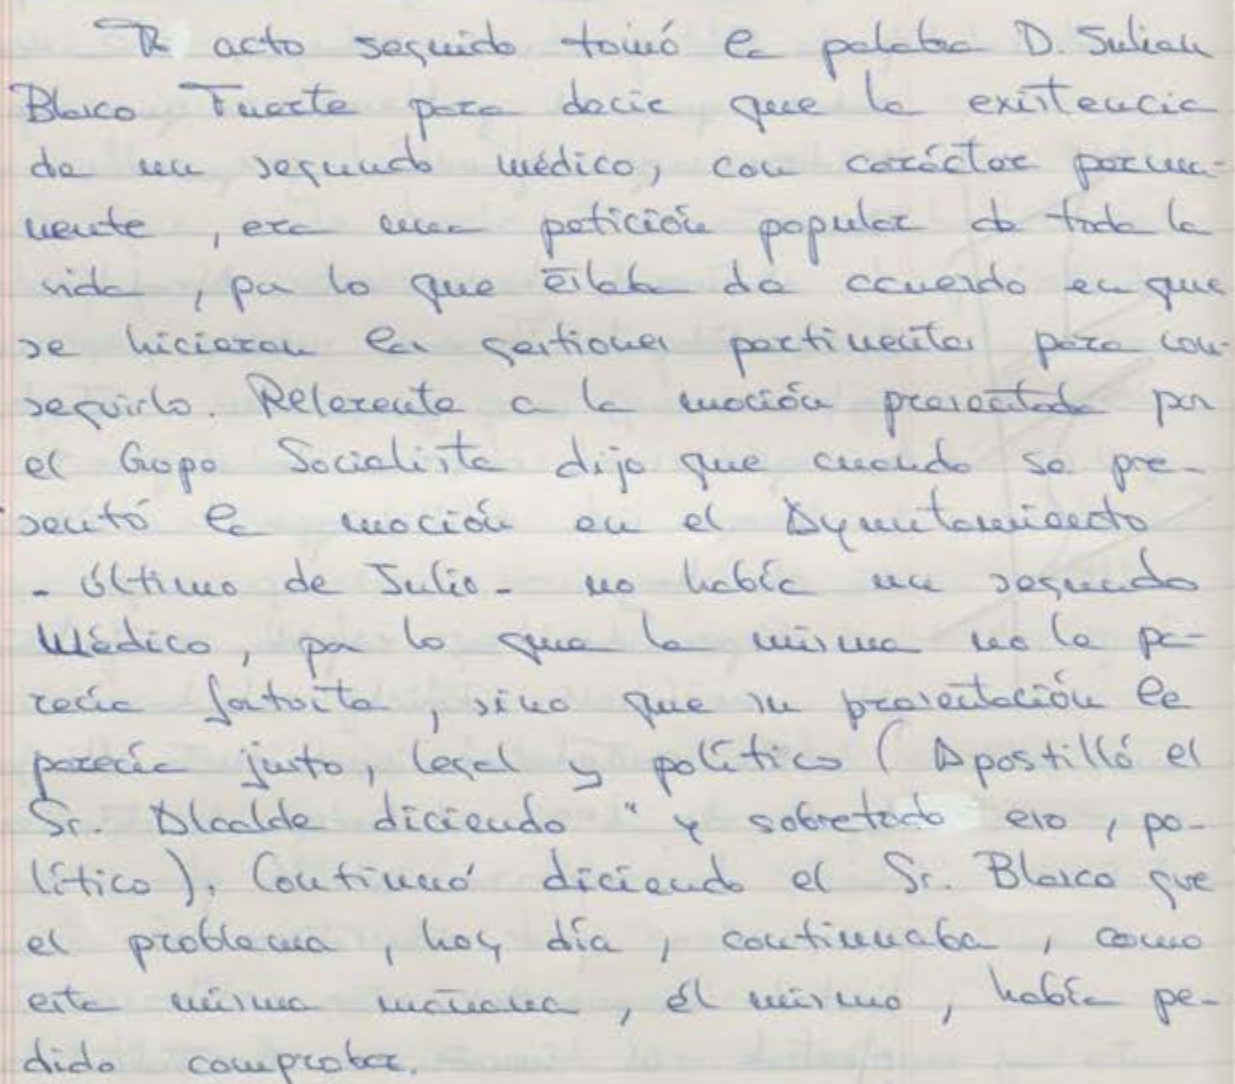 A acto seguido tomó la palabra D. Julian
Blasco Fuerte para decir que la existencia
de un segundo médico, con carácter perma-
nente, era una petición popular de toda la
vida, por lo que estaba de acuerdo en que
se hicieran las gestiones pertinentes para con-
seguirlo. Referente a la moción presentada por
el Gupo Socialista dijo que cuando se pre-
sentó la moción en el Ayuntamiento
- último de Julio - no había un segundo
Médico, por lo que la misma no le pa-
recía fortuita, sino que su presentación le
parecía justo, legal y político (Apostilló el
Sr. Alcalde diciendo " y sobretodo eso, po-
lítico). Continuó diciendo el Sr. Blasco que
el problema, hoy día, continuaba, como
esta misma mañana, él mismo, había pe-
dido comprobar.